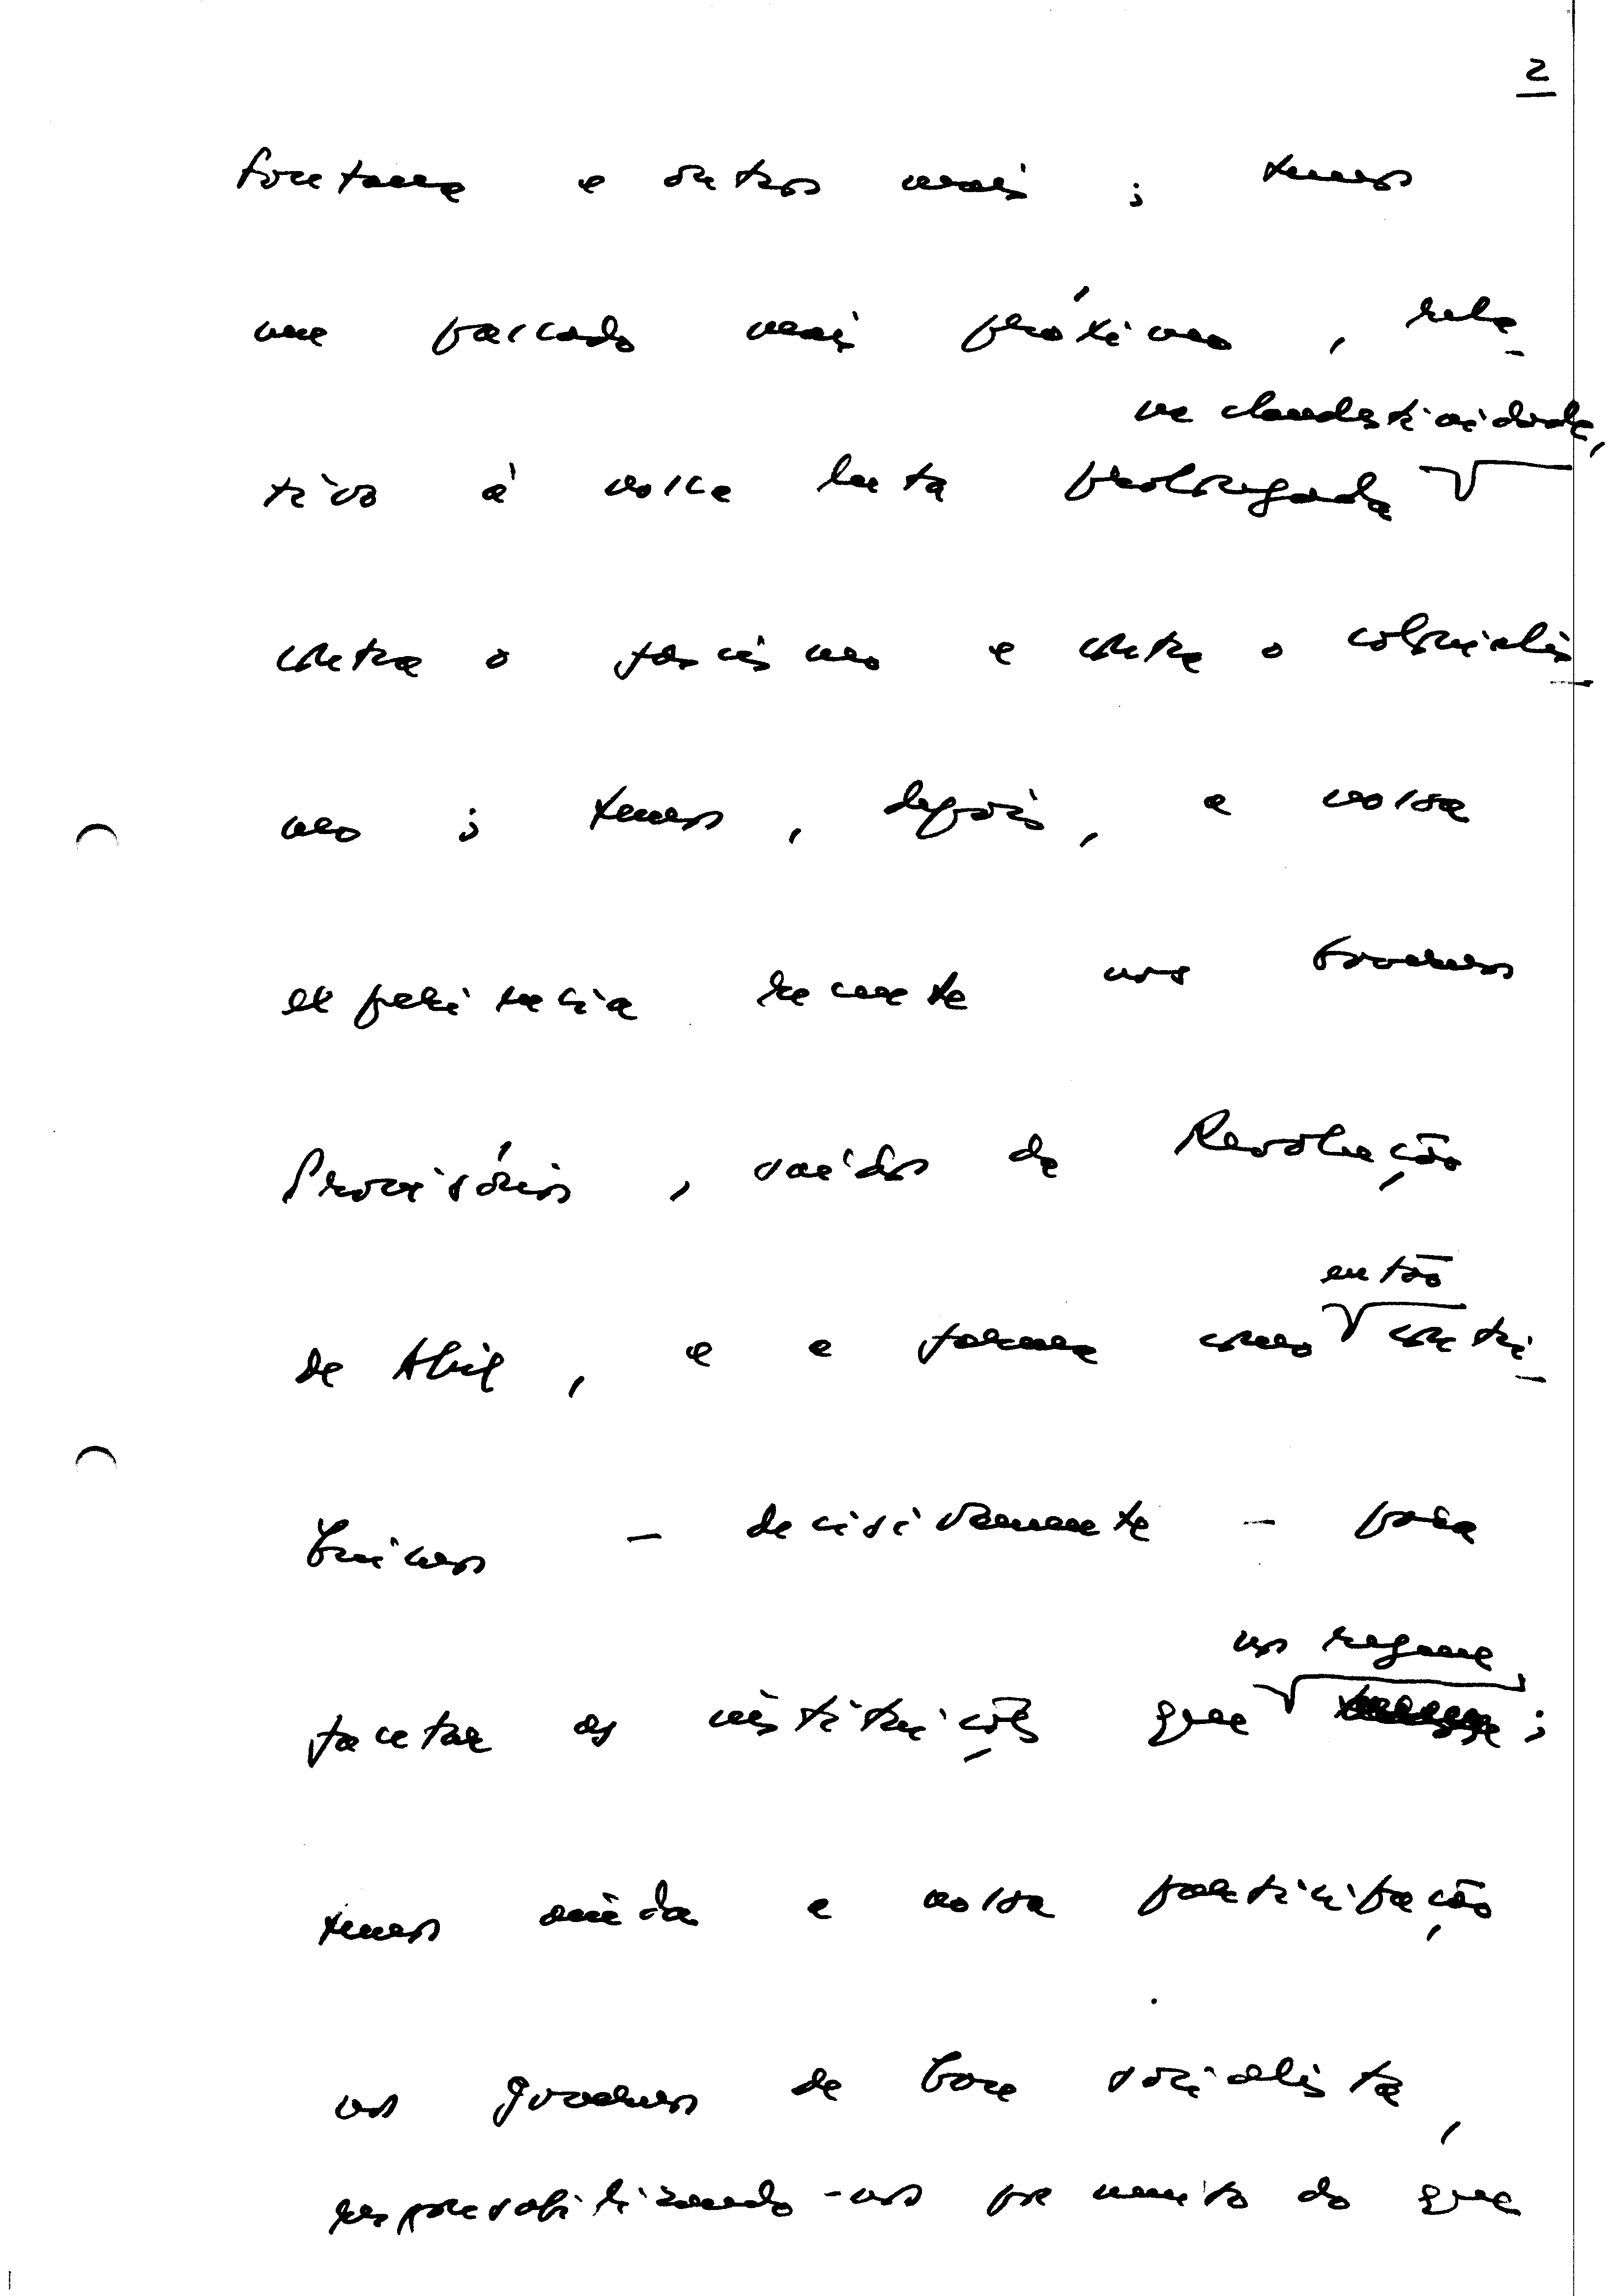 2
Fontana e outros mais ; temos
um passado mais próximo , rela-
na clandestinidade,
tivo à nossa luta prolongada
contra o fascismo e contra o colonialis-
mo ; temos , depois , a nossa
experiência recente nos Governos
Provisórios , saídos da Revolução
de Abril , e a forma como contri-
então
buímos - decisivamente - para
nos regem
facetar as instituições que ;
temos ainda a nossa participação
nos Governos de base socialista ,
responsabilizando-nos por muito do que